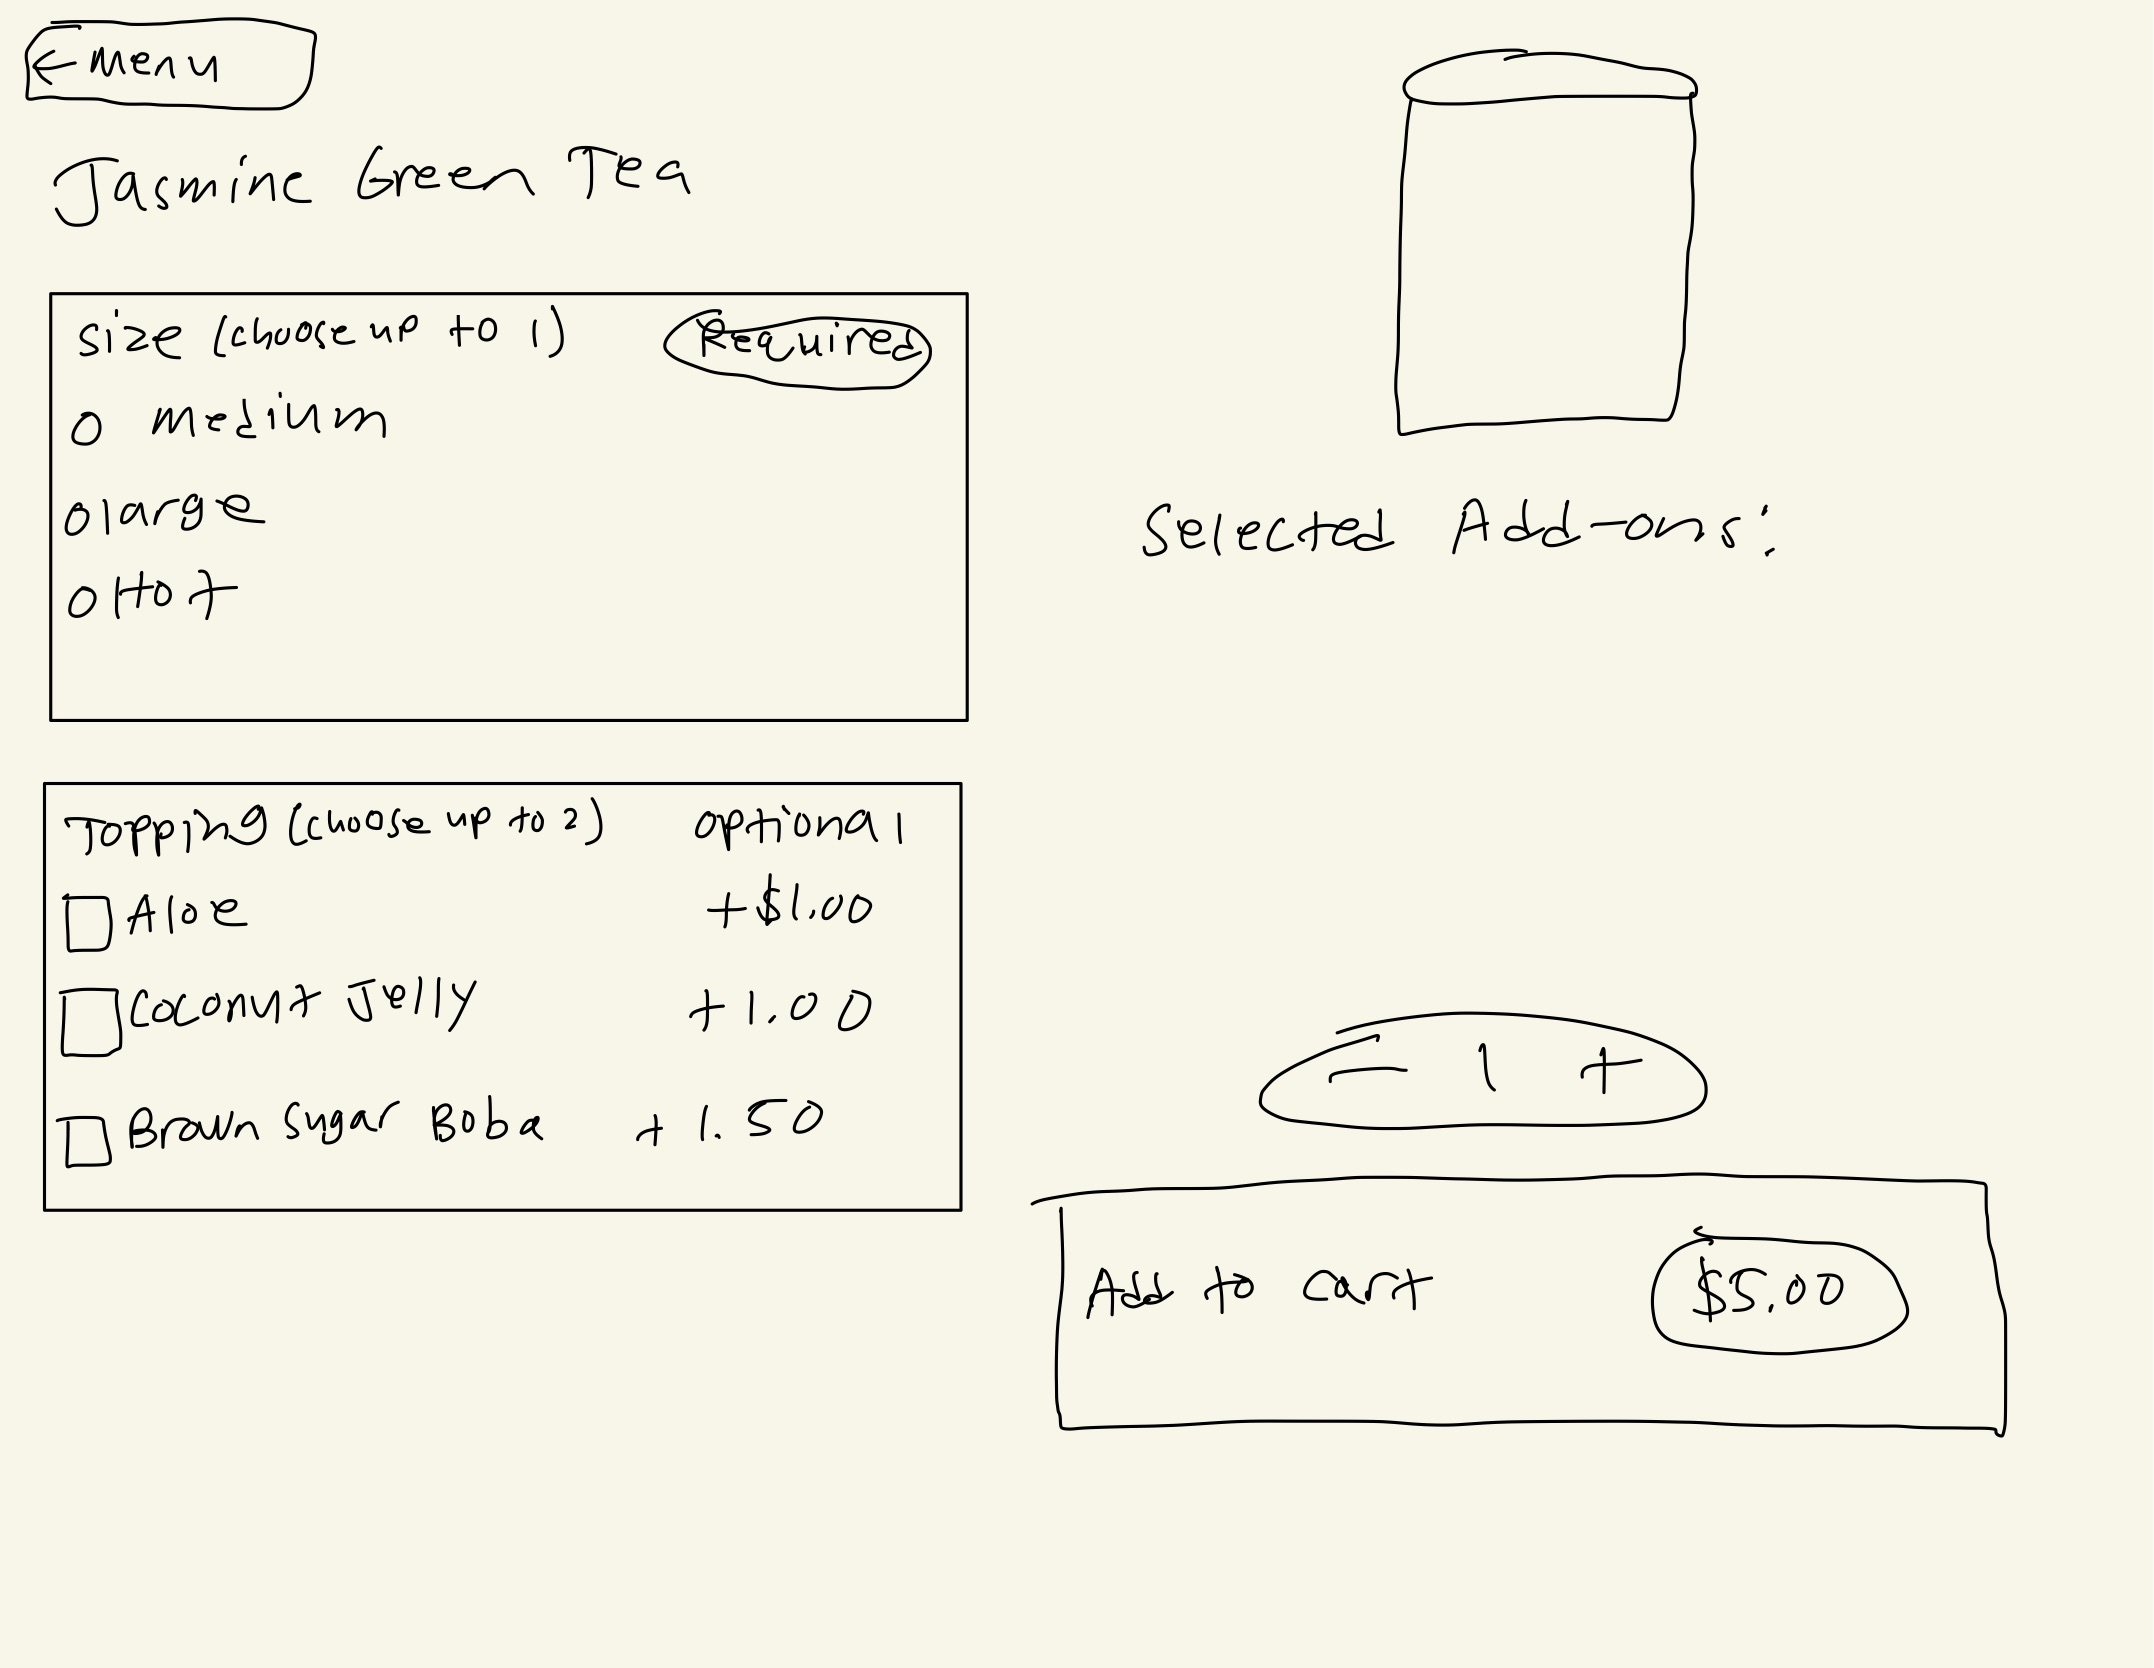 ← Menu
Jasmine Green Tea
Size (choose up to 1) Required
O Medium
O large
O Hot
Topping (choose up to 2) optional
Aloe +$1.00
Coconut Jelly +1.00
Brown Sugar Boba +1.50
Selected Add-ons:
- 1 +
Add to cart $5.00